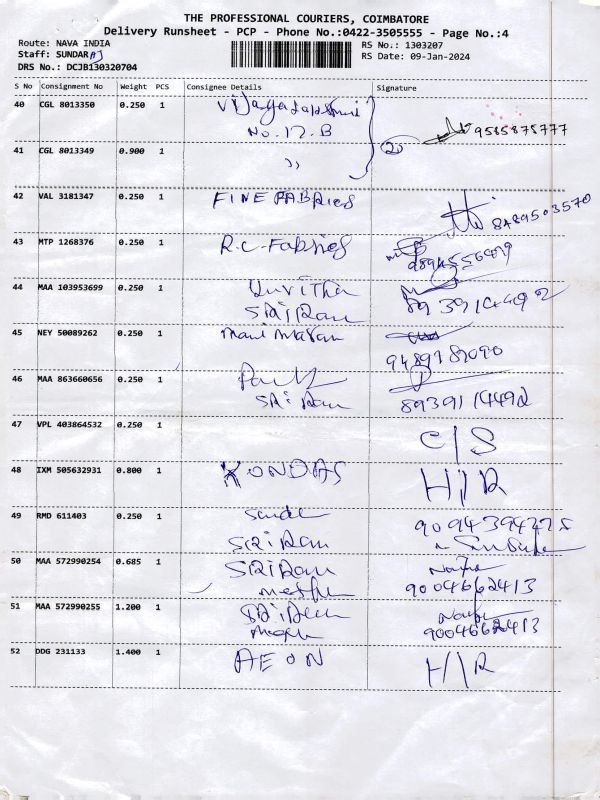 THE PROFESSIONAL COURIERS, COIMBATORE
Delivery Runsheet - PCP - Phone No.:0422-3505555 - Page No.:4
Route: NAVA INDIA
RS No.: 1303207
Staff: SUNDARAJ
RS Date: 09-Jan-2024
DRS No.: DCJB130320704
S No Consignment No Weight PCS Consignee Details Signature
40 CGL 8013350 0.250 1
No. 17. B
20 9585875777
41 CGL 8013349 0.900 1 ,,
42 VAL 3181347 0.250 1 FINE FABRICS 8489503570
43 MTP 1268376 0.250 1 R.C. Fabrics
44 MAA 103953699 0.250 1
SRI Ram 8939114492
45 NEY 50089262 0.250 1 Manimaran
9489787090
46 MAA 863660656 0.250 1
SRI Ram 8939114492
47 VPL 403864532 0.250 1 C/S
48 IXM 505632931 0.800 1 KONDAS H/R
49 RMD 611403 0.250 1
SRI Ram
50 MAA 572990254 0.685 1 SRI Ram
9004662413
51 MAA 572990255 1.200 1
9004662413
52 DDG 231133 1.400 1 AEON H/R